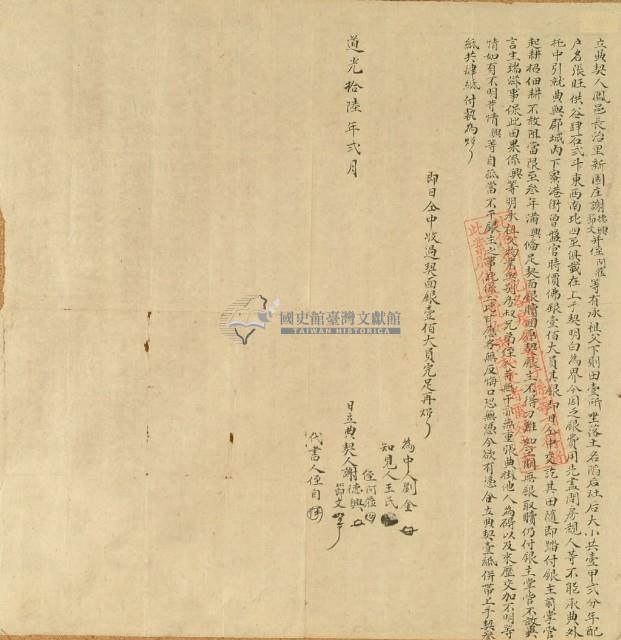 立典契人鳳邑長治里新園庄謝德興節文并侄阿蔭等有承祖父下則田壹所坐落土名前后社后大小共壹甲弍分年配
戶名張旺供谷肆石弍斗東西南北四至俱載在上手契明白為界今因乏銀費用先盡問房親人等不能承典外
托中引就典與郡城內下寮港街曾盤官時價佛銀壹佰大員其銀即日仝中交訖其田隨即踏付銀主前去掌管
起耕招佃耕不敢阻當限至叁年滿興備足契面銀贖回原契銀主不得刁難如至期無銀取贖仍付銀主掌管不敢異
言生端滋事保此田果係興等明承祖父物業與別房叔兄弟侄人等無干亦無重張典掛他人為碍以及來歷交加不明等
情如有不明等情興等自抵當不干銀主之事此係二比甘愿各無反悔口恐無憑今欲有憑仝立典契壹紙併帶上手契
紙共肆紙付執為炤
即日仝中收過契面銀壹佰大員完足再炤
為中人劉金
知見人王氏
侄阿蔭
日立典契人謝德興
節文
代書人侄自
道光拾陸年弍月
國史館臺灣文獻館
TAIWAN HISTORICA